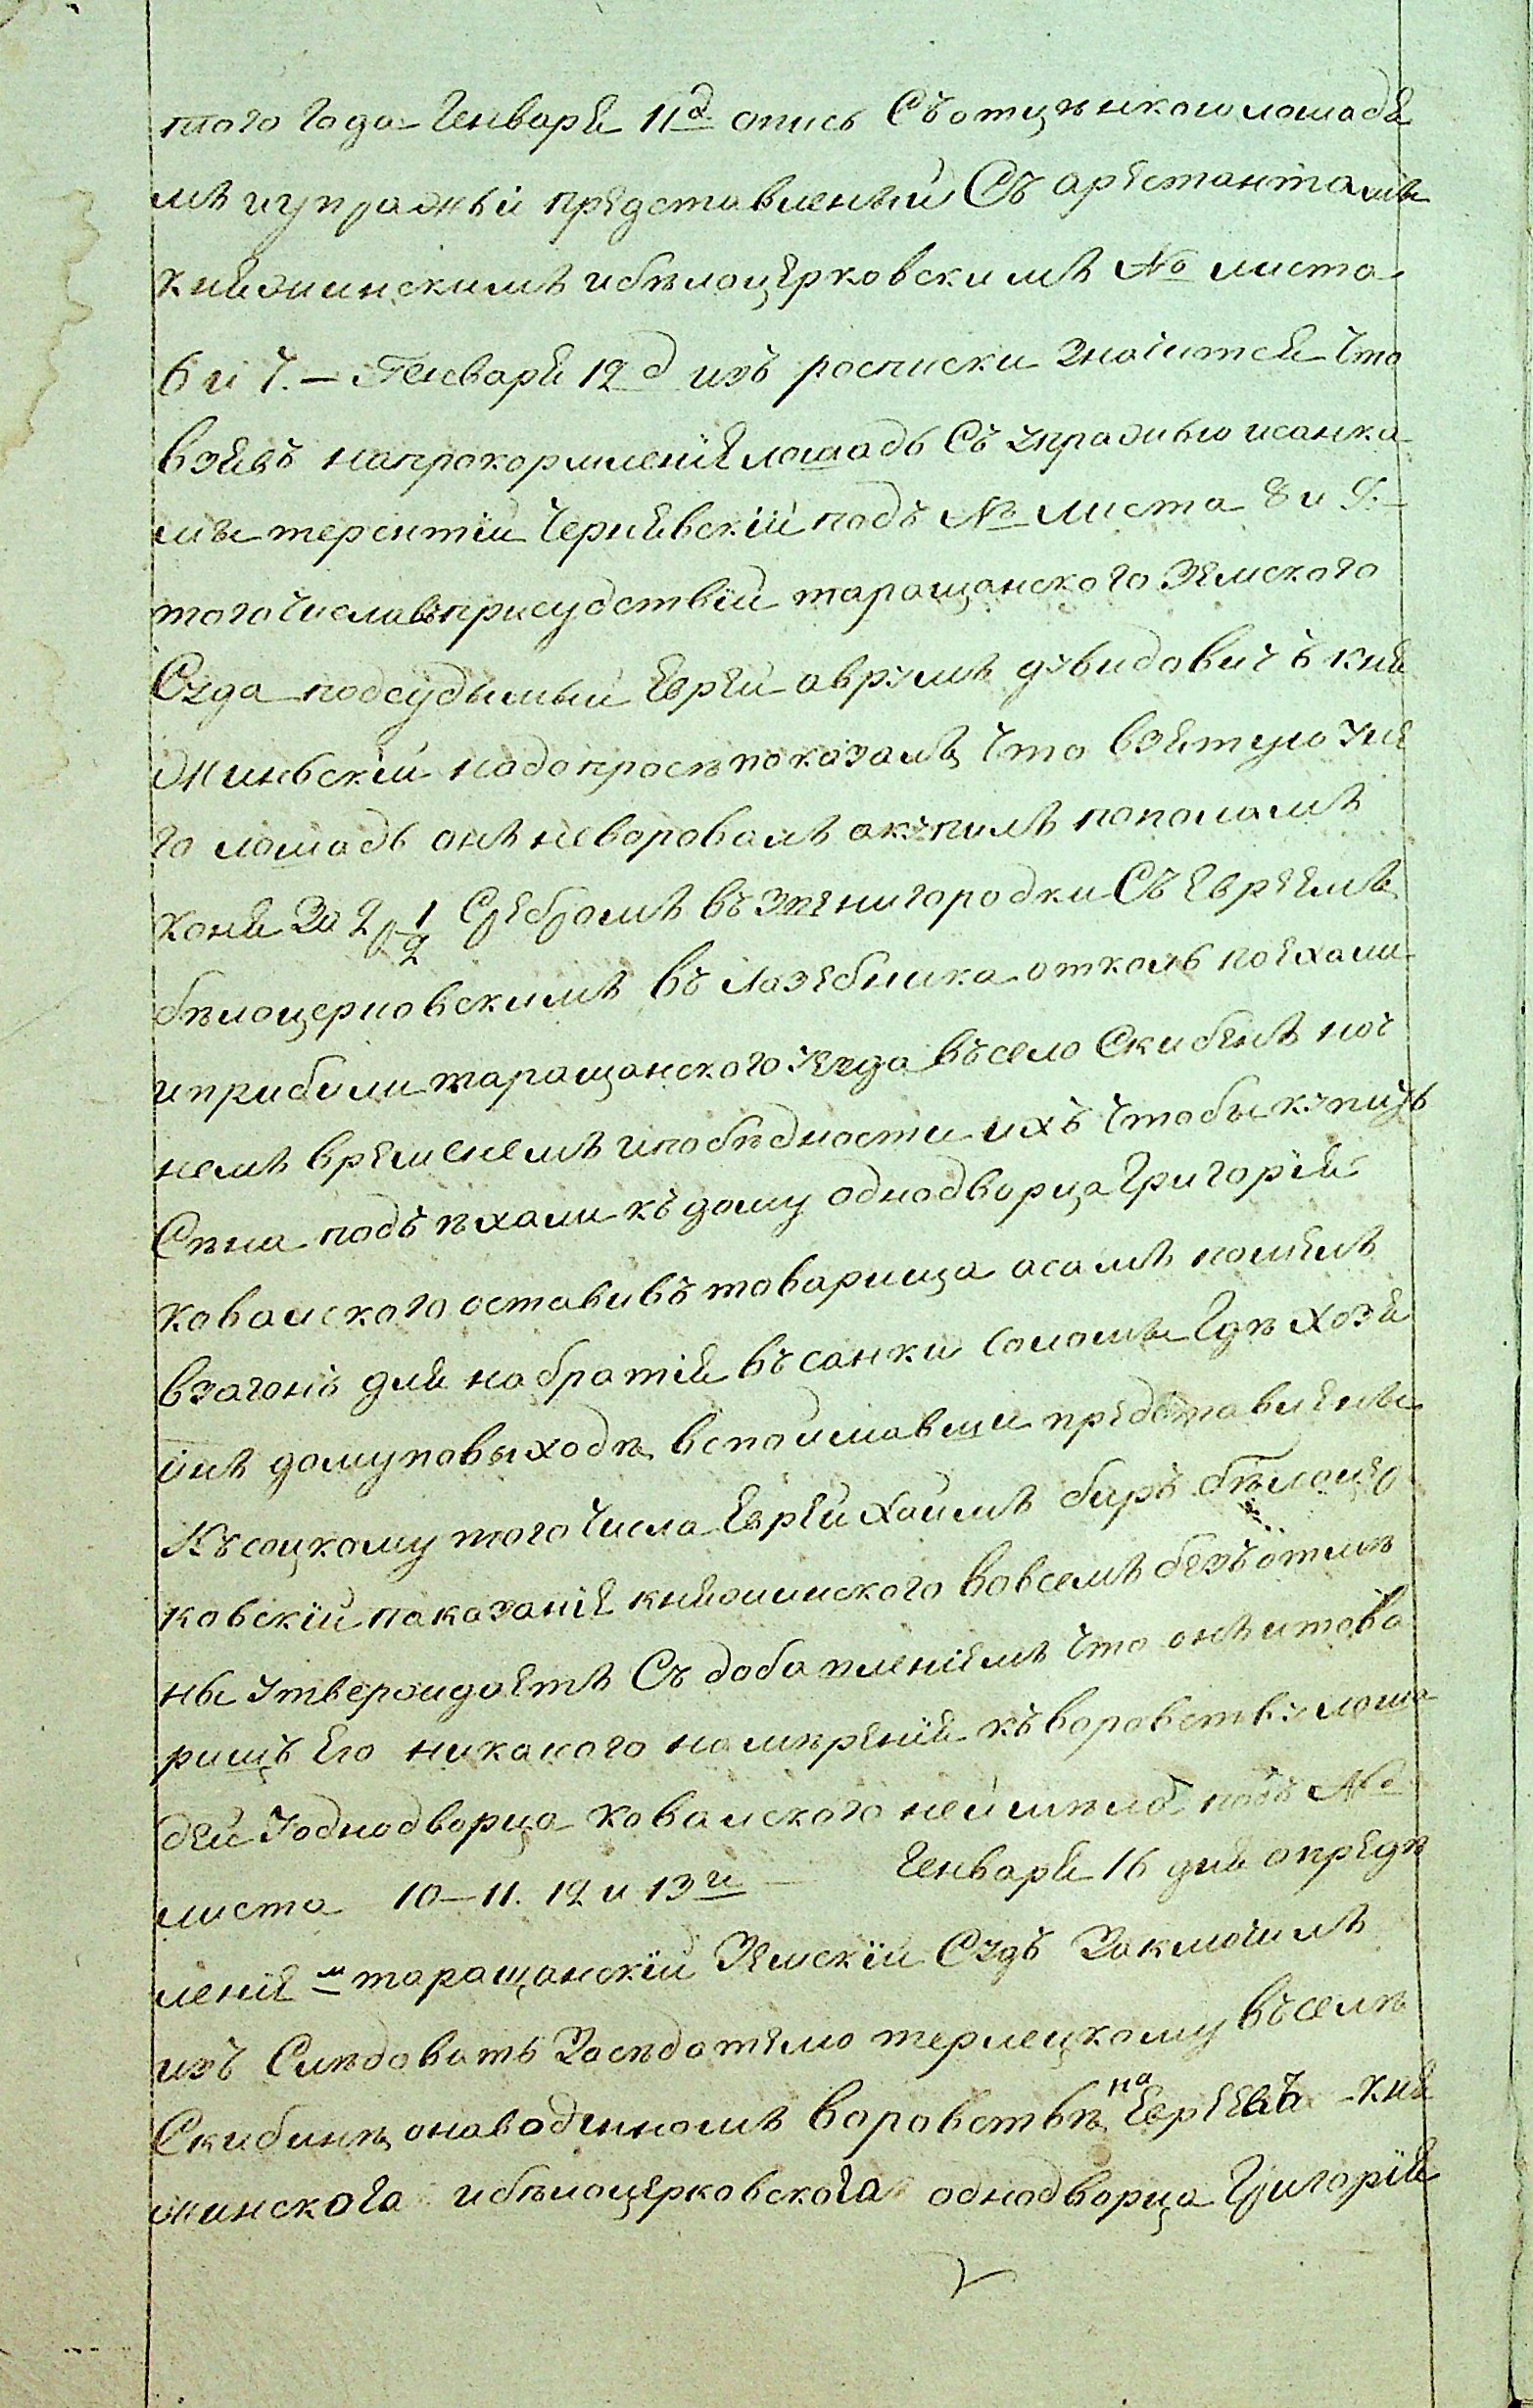 того года Генваря 11д опись съотцънкою лошадѣ
мъ и упражьи представленъи Съ арестантами
княжинскимъ ибѣлоцерковскимъ № листа
6 и 7. — Генваря 12 д изъ росписки значится что
взявъ напрокормление лошадь съ упражью исанка
мы терентій Чернявскій подъ № листа 8 и 9. —
того числа въприсудствіи таращанского Земского
Суда подсудымый Еврей аврумъ дувидовичъ кня
жиньскій надопросѣ показалъ что взятую уне
го лошадь онъ неворовалъ акупилъ пополамъ
коня за 2 р 1/2 Сребромъ въ Звенигородки Съ Евреемъ
бѣлоцерковскимъ въ Лазебника отколь поехали
иприбили таращанского уезда въсело Скибенъ ноч
немъ временемъ ипобѣдности ихъ чтобы купить
Сѣна подъѣхали къ дому однодворца Григорія
ковалского оставивъ товарища асамъ пошелъ
взагонъ для набратія въ санки соломы Гдѣ хозя
инъ дому повыходѣ вспоимавши представлены
Къ соцкому того числа Еврей Хаимъ беръ бѣлоцер
ковскій показание княжинского вовсемъ безъ отмѣ
ны утверждаетъ Съ добавлениемъ что онъ итова
рищъ Его никакого намѣрения къ воровству лоша
дей Уоднодворца ковалского неимѣлъ подъ №д
листа 10 — 11. 12 и 13и — Генваря 16 дня опредѣ
ление м таращанскій Земскій Судъ Заключилъ
изъ Слѣдовать Засѣдателю терлецкому въселѣ
Скибинѣ онаводимомъ воровствѣ на Евреевъ кня
жинского ибѣлоцерковскога однодворца Григорія